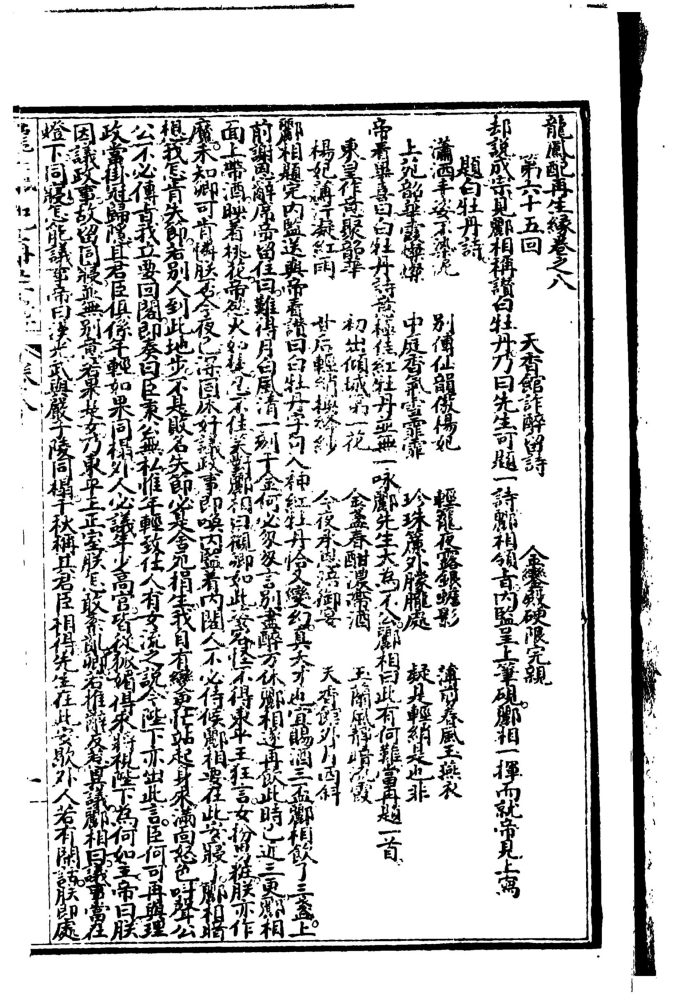 龍鳳配再生緣卷之八
第六十五回　天香館詐醉留詩　金鑾殿硬限完親
却說成宗見酈相稱讚白牡丹乃曰先生可題一詩酈相領旨內監呈上筆硯酈相一揮而就帝見上寫
題白牡丹詩
瀟洒丰姿不染泥　別傳仙韻傲楊妃　輕籠夜露銀蟾影　薄剪春風玉燕衣
上苑韶華霞燦燦　中庭香氣雪霏霏　珍珠簾外朦朧處　疑是輕綃是也非
帝看畢喜曰白牡丹詩意極佳紅牡丹並無一咏酈先生大為不公酈相曰此有何難當再題一首
東皇作意聚韶華　初出傾城第一花　金盞春酣濃滯酒　玉闌風靜晴流霞
楊妃講汗凝紅雨　后輕綃映紗　今夜承恩落御宴　天香館外月西斜
酈相題完內監送與帝看讚曰白牡丹字句入神紅牡丹恰又變幻真天才也宜賜酒三盃酈相飲了三盞上
前謝恩辭席帝留住曰難得月白風清一刻千金何必匆匆言別盡醉方休酈相遂再飲此時已近三更酈相
面上帶酒映着桃花帝慾火如焚忍不住笑對酈相曰觀卿如此姿容怪不得東平王狂言女扮男粧朕亦作
魔未知卿可肯憐朕否今夜已深同床好議政事即喚內監着內閣人不必侍候酈相要在此安寢了酈相暗
想我怎肯失節若別人到此地步不是敗名失節必是舍死捐生我自有變忙站起身來滿面怒色叫聲公
公不必傳旨我立要回閣即奏曰臣秉公無私惟年輕致仕人有女流之說今陛下亦出此言臣何可再與理
政當掛冠歸隱且君臣俱係年輕如果同榻外人必議年少高官皆從狐媚得來將視陛下為何如主帝曰朕
因議政事故留同寢並無別意若果是女乃東平王正室朕怎敢紊亂卿若推辭反若異議酈相曰議事當在
燈下同寢怎能議事帝曰漢光武與嚴子陵同榻千秋稱其君臣相得先生在此安歇外人若有閒話朕即處